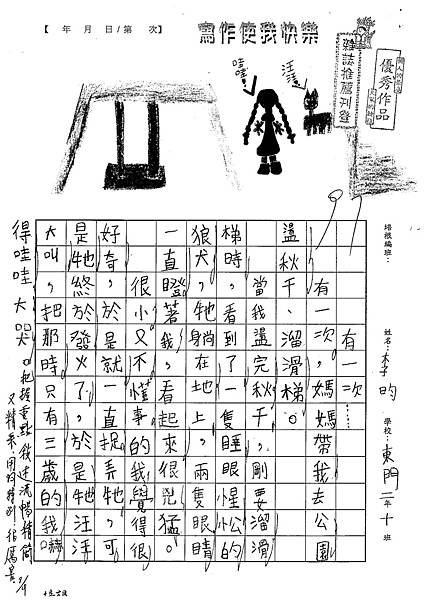 【 年 月 日/第 次】
寫作使我快樂
雜誌推薦刊登
優秀作品
哇哇!
汪汪!
培根編班:
姓名:李昀
學校:東門二年十班
有一次……
有一次,媽媽帶我去公園
盪秋千、溜滑梯。
當我盪完秋千,剛要溜滑
梯時,看到了一隻睡眼惺忪的
狼犬,牠躺在地上,兩隻眼睛
一直瞪著我,看起來很兇猛。
很小又不懂事的我覺得很
好奇,於是就一直捉弄牠,可
是牠終於發火了,於是牠汪汪
大叫,把那時只有三歲的我嚇
得哇哇大哭。
把握重點敘述流暢精簡
又精彩,用詞特別,很厲害